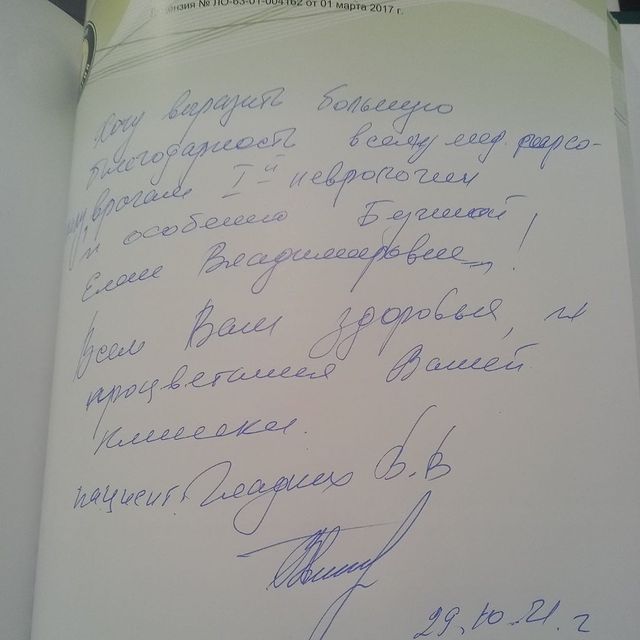 Лицензия № ЛО-63-01-004162 от 01 марта 2017 г.
Хочу выразить большую
благодарность всему мед. персо-
налу, врачам I й неврологии
и особенно
Елене Владимировне!
Всем Вам здоровья, и
процветания Вашей
клиники.
пациент: Гладких В.В
29.10.21.г